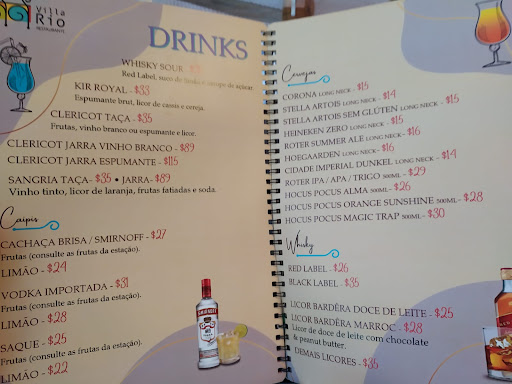 Villa
Rio
RESTAURANTE
DRINKS
WHISKY SOUR -
Red Label, suco de limão e xarope de açúcar.
KIR ROYAL - $33
Espumante brut, licor de cassis e cereja.
CLERICOT TAÇA - $35
Frutas, vinho branco ou espumante e licor.
CLERICOT JARRA VINHO BRANCO - $89
CLERICOT JARRA ESPUMANTE - $115
SANGRIA TAÇA - $35 • JARRA - $89
Vinho tinto, licor de laranja, frutas fatiadas e soda.
Caipis
CACHAÇA BRISA / SMIRNOFF - $27
Frutas (consulte as frutas da estação).
LIMÃO - $24
VODKA IMPORTADA - $31
Frutas (consulte as frutas da estação).
LIMÃO - $28
SAQUE - $25
Frutas (consulte as frutas da estação).
LIMÃO - $22
SMIRNOFF
Cervejas
CORONA LONG NECK - $15
STELLA ARTOIS LONG NECK - $14
STELLA ARTOIS SEM GLÚTEN LONG NECK - $15
HEINEKEN ZERO LONG NECK - $15
ROTER SUMMER ALE LONG NECK - $16
HOEGAARDEN LONG NECK - $16
CIDADE IMPERIAL DUNKEL LONG NECK - $14
ROTER IPA / APA / TRIGO 500ML - $29
HOCUS POCUS ALMA 500ML - $26
HOCUS POCUS ORANGE SUNSHINE 500ML - $28
HOCUS POCUS MAGIC TRAP 500ML - $30
Whisky
RED LABEL - $26
BLACK LABEL - $35
LICOR BARDÊRA DOCE DE LEITE - $25
LICOR BARDÊRA MARROC - $28
Licor de doce de leite com chocolate
& peanut butter.
DEMAIS LICORES - $35